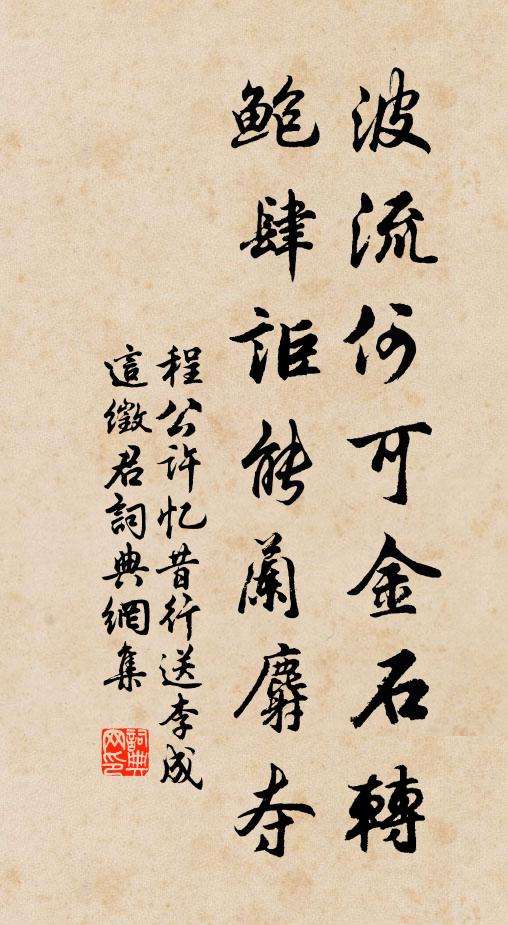 波流何可金石轉
鮑肆詎能蘭麝夺
程公許忆昔行送李成
這徵君詞典網集
詞典网印